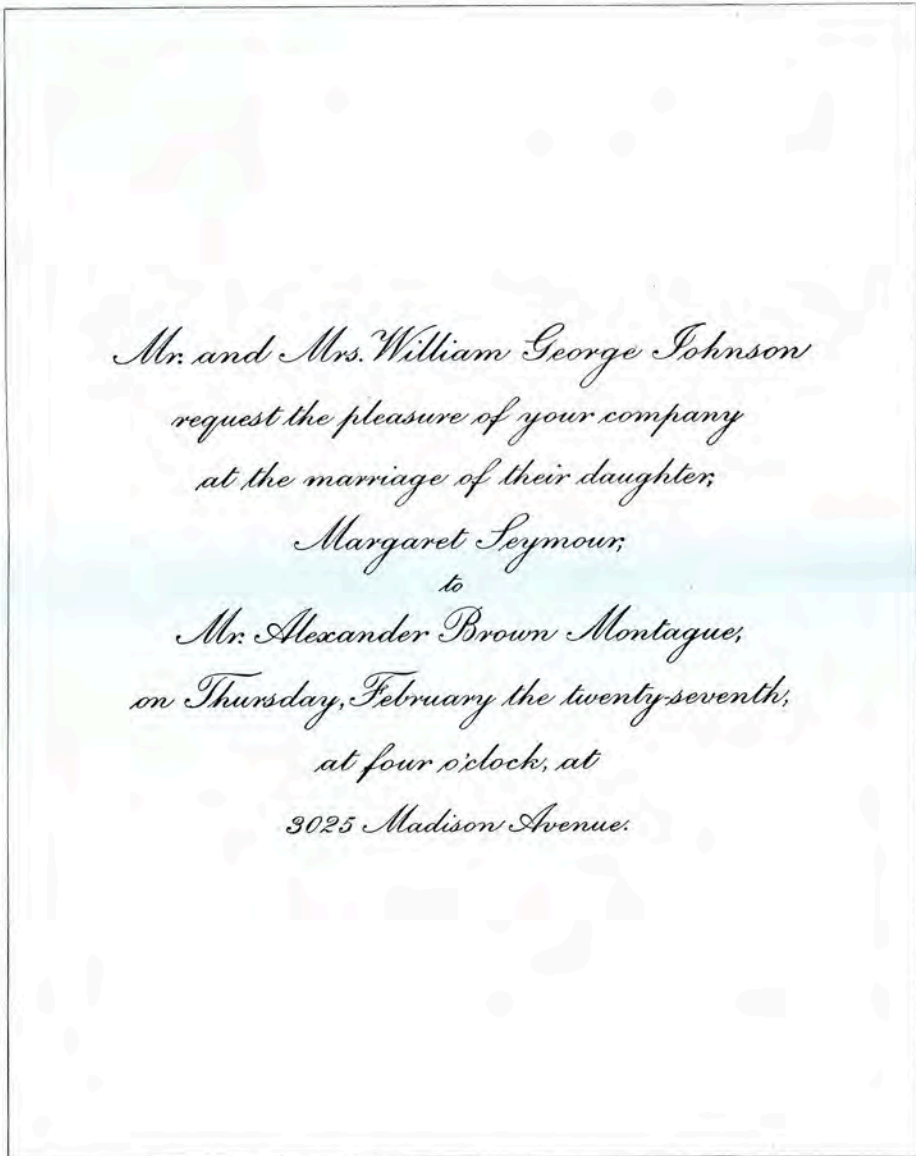 Mr. and Mrs. William George Johnson
request the pleasure of your company
at the marriage of their daughter,
Margaret Seymour,
to
Mr. Alexander Brown Montague,
on Thursday, February the twenty-seventh,
at four o'clock, at
3025 Madison Avenue.